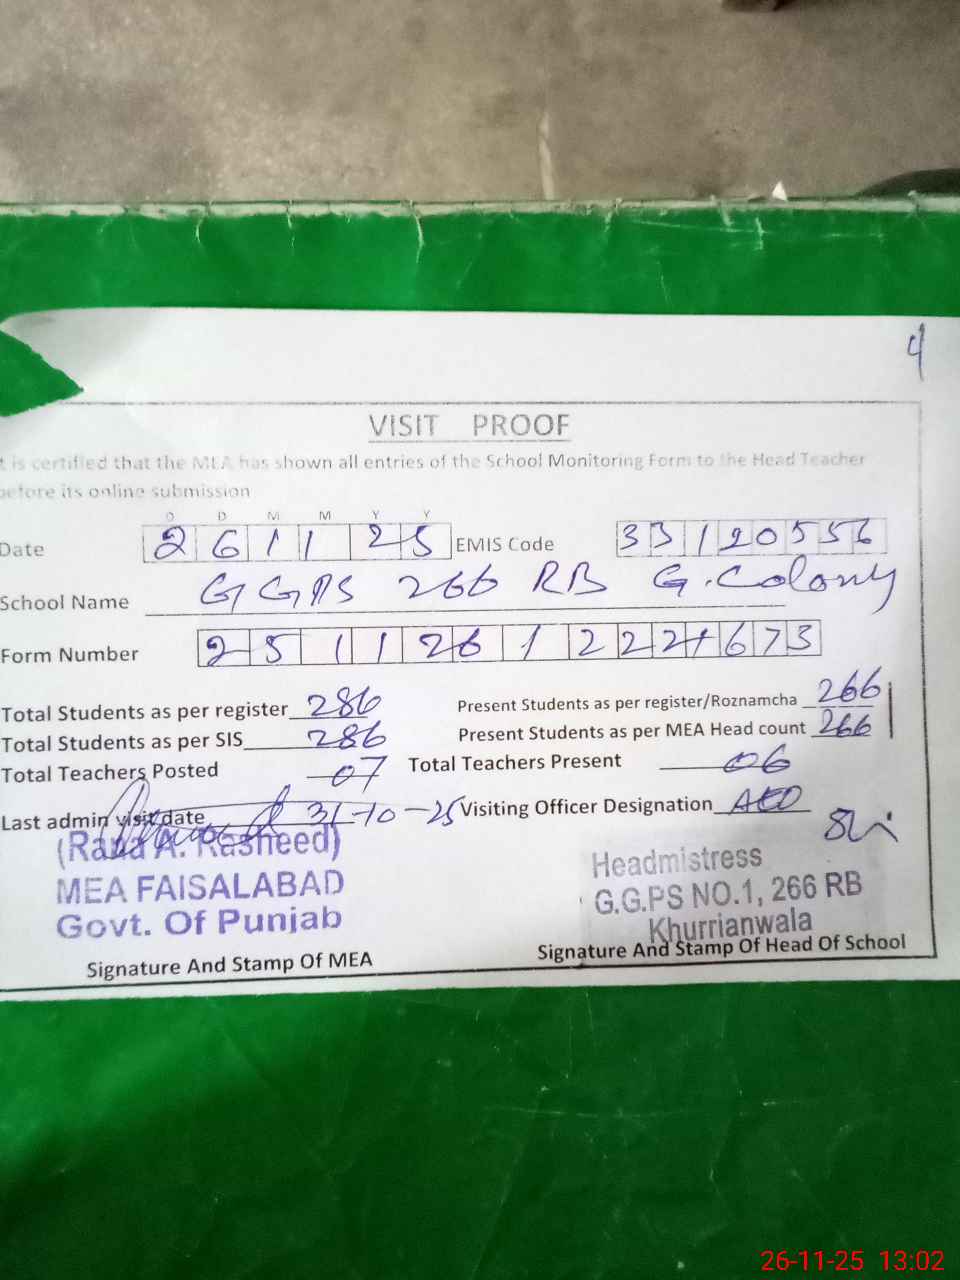 4
VISIT PROOF
t is certified that the MEA has shown all entries of the School Monitoring Form to the Head Teacher
before its online submission
D D M M Y Y
Date 2 6 1 1 2 5 EMIS Code 3 3 1 2 0 5 5 6
School Name GGPS 266 RB G. Colony
Form Number 2 5 1 1 2 6 1 2 2 2 6 7 3
Total Students as per register 286 Present Students as per register/Roznamcha 266
Total Students as per SIS 286 Present Students as per MEA Head count 266
Total Teachers Posted 07 Total Teachers Present 06
Last admin visit date 31-10-25 Visiting Officer Designation AEO
(Rana A. Rasheed)
MEA FAISALABAD
Govt. Of Punjab
Headmistress
G.G.PS NO.1, 266 RB
Khurrianwala
Signature And Stamp Of MEA Signature And Stamp Of Head Of School
26-11-25 13:02